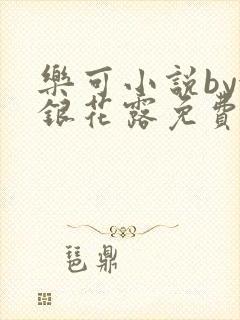 樂可小說by
銀花露免費
琶鼎